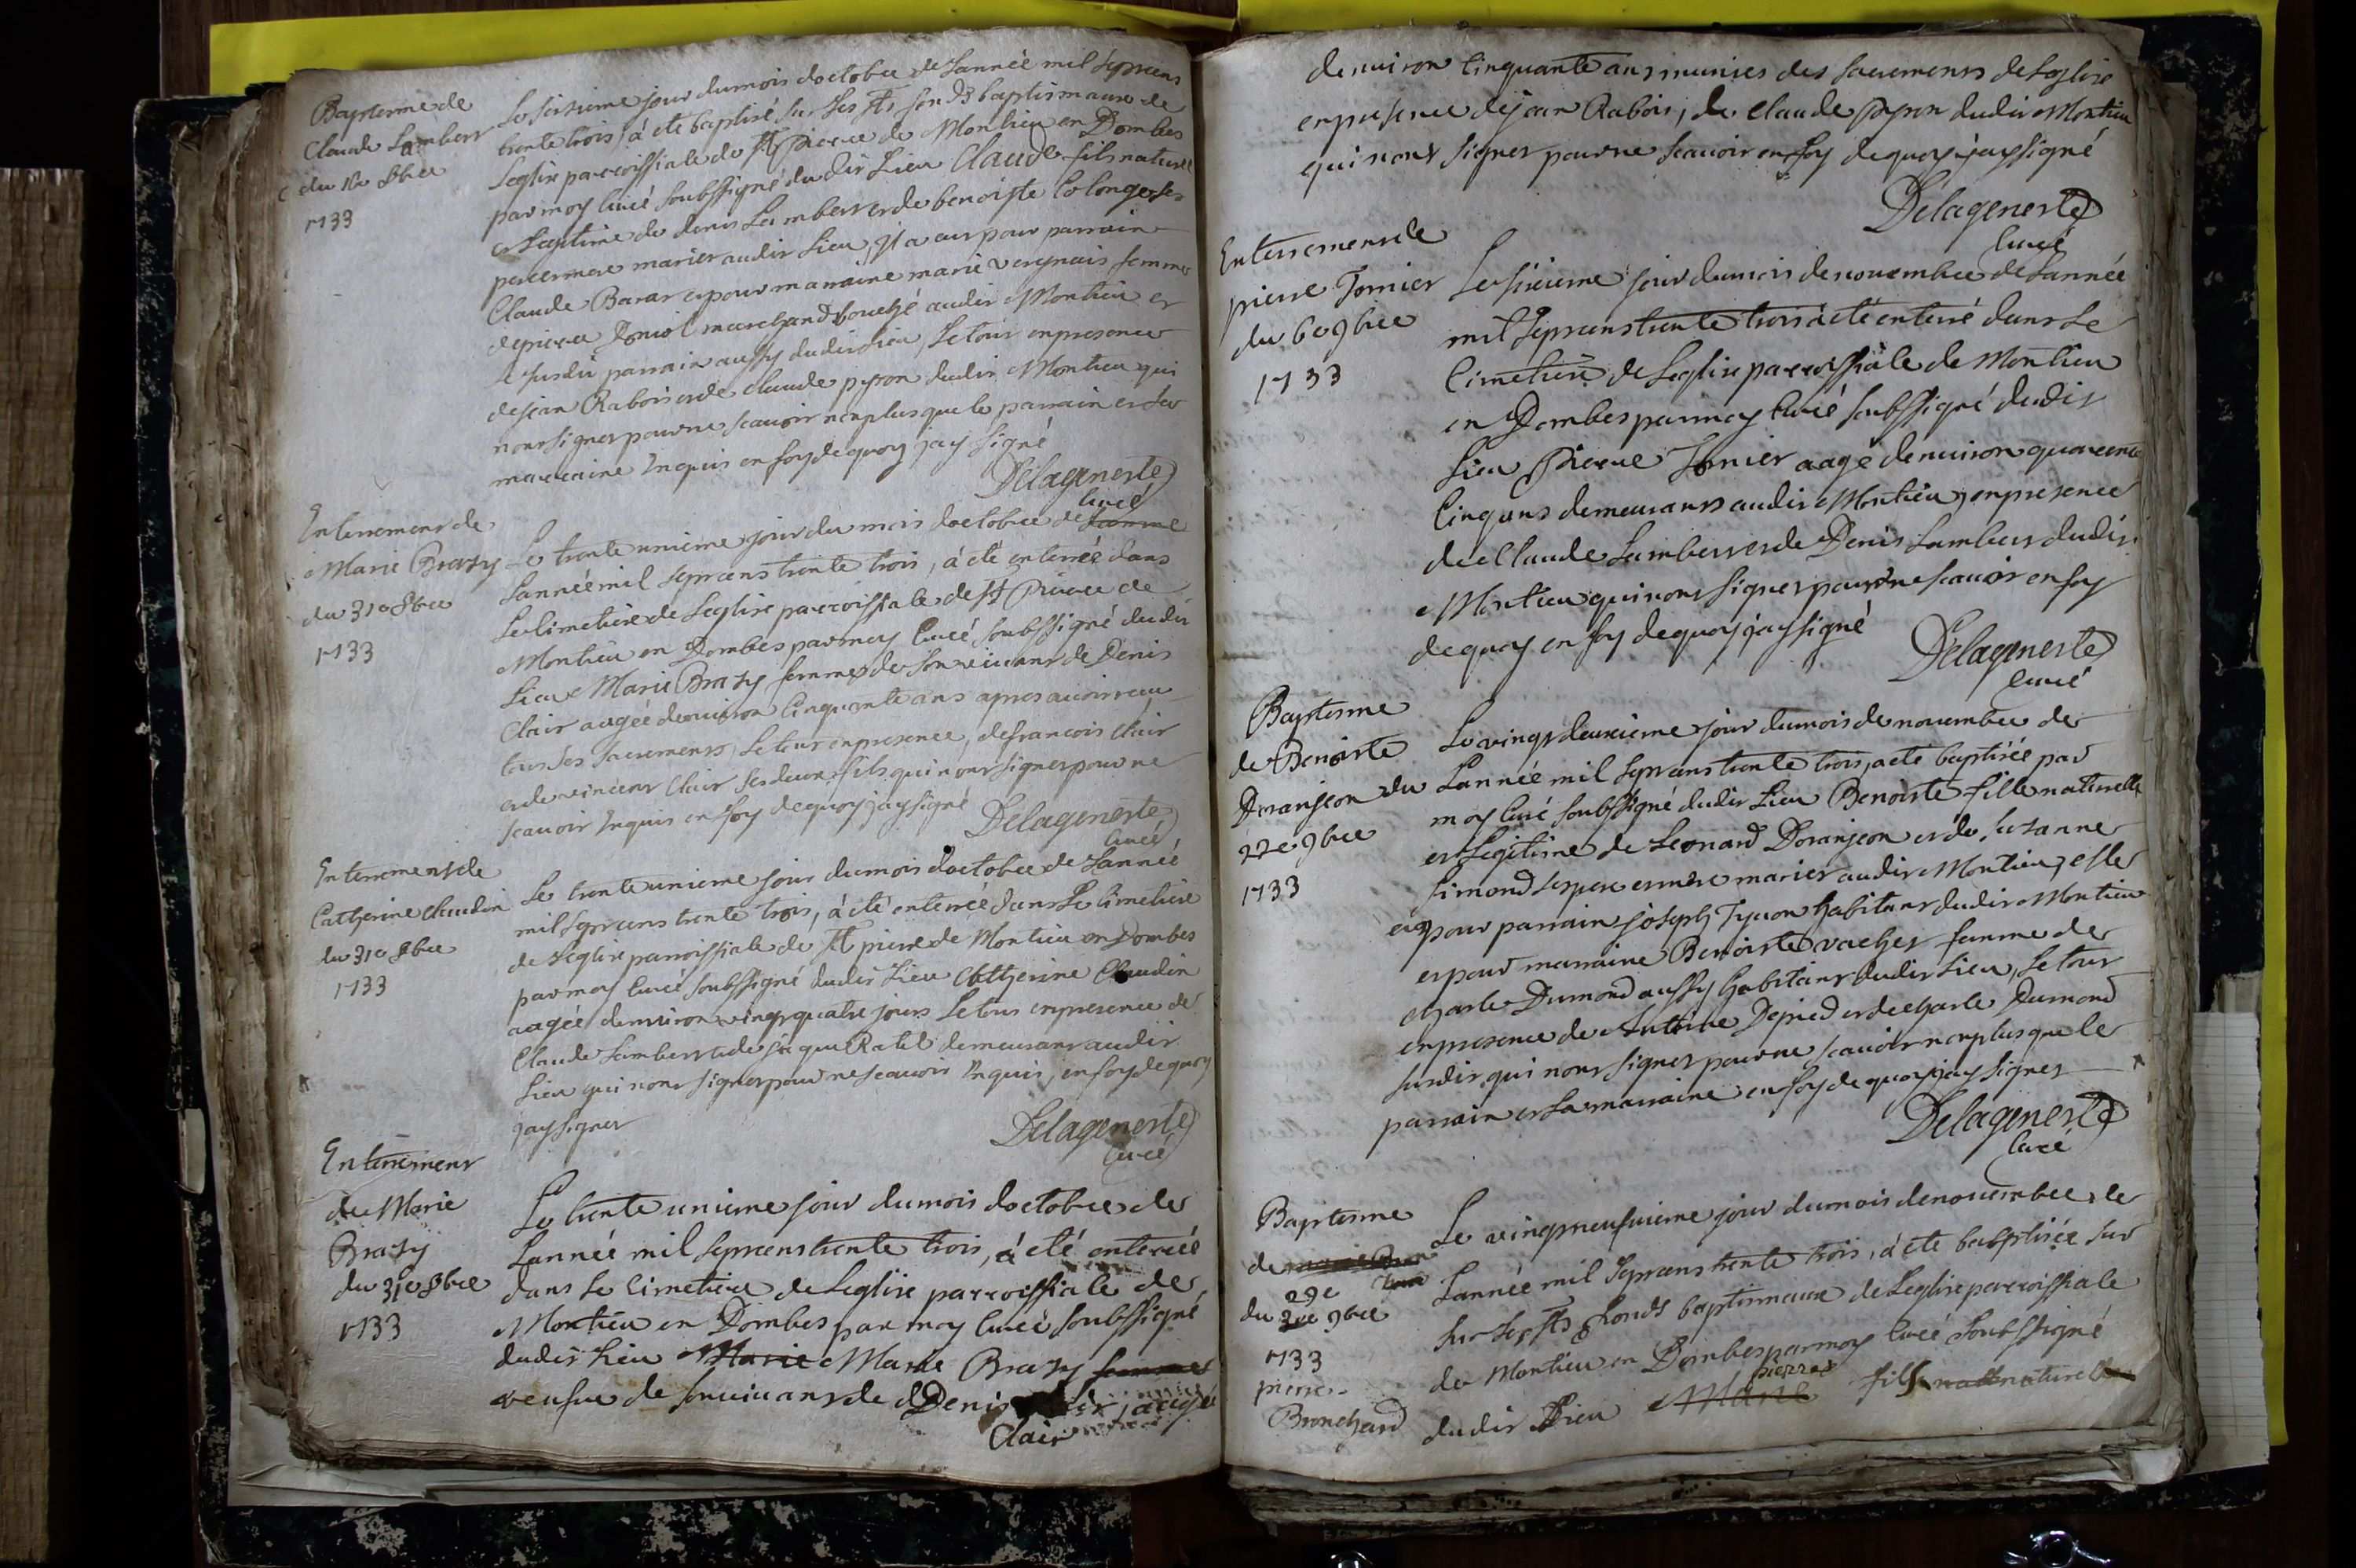 Baptesme de
Claude Lambert
du 16e 8bre
1733
Le seizieme jour du mois doctobre de Lannée mil septcens
trente trois, à eté baptisé sur Les sts fonds baptismaux de
Leglise parroissiale de st Pierre de Montieu en Dombes
par moy Curé soubssigné dudit Lieu Claude fils naturel
et Legitime de denis Lambert et de benoiste Colonge ses
pere et mere mariez audit Lieu, Il a eu pour parrain
Claude Barat et pour marraine marie vergnais femme
de pierre marchand bouché audit Montieu et
Le susdit parrain aussy dudit Lieu, Le tout en presence
de jean Rabois et de claude pyron dudit Montieu qui
nont signer pour ne scauoir non plus que le parrain et La
marraine Enquis en foy de quoy jay signé
Delageneste
Curé
Enterrement de
Marie Brazy
du 31e 8bre
1733
Le trente unieme jour du mois doctobre de
Lannée mil septcens trente trois, à eté enterrée dans
Le Cimetiere de Leglise parroissiale de st Pierre de
Montieu en Dombes par moy Curé soubssigné dudit
Lieu Marie Brazy femme de son viuant de Denis
Clair aagée denuiron Cinquante ans apres auoir receu
tous ses sacremens, Le tout en presence, de francois Clair
et de vincent Clair ses deux fils qui nont signer pour ne
scauoir Enquis en foy de quoy jay signé
Delageneste
Curé
Enterrement de
Catherine Claudin
du 31e 8bre
1733
Le trente unieme jour du mois doctobre de Lannée
mil septcens trente trois, à eté enterrée dans Le Cimetiere
de Leglise parroissiale de st pierre de Montieu en Dombes
par moy Curé soubssigné dudit Lieu Catherine Claudin
aagée denuiron vingt quatre jours Le tout en presence de
Claude Lambert et de jaque Ratel demeurant audit
Lieu qui nont signer pour ne scauoir Enquis, en foy de quoy
jay signer
Delageneste
Curé
Enterrement
de Marie
Brazy
du 31e 8bre
1733
Le trente unieme jour du mois doctobre de
Lannée mil septcens trente trois, à eté enterrée
dans Le Cimetiere de Leglise parroissiale de
Montieu en Dombes par moy Curé soubssigné
dudit Lieu Marie Marie Brazy femme
veufue de son viuant de Denis aagée
Clair
denuiron Cinquante ans munies des sacremens de Leglise
en presence de jean Rabois, de Claude Pyron dudit Montieu
qui nont signer pour ne scauoir en foy de quoy jay signé
Delageneste
Curé
Enterrement de
pierre Tornier
du 6e 9bre
1733
Le sixieme jour du mois de nouembre de Lannée
mil septcens trente trois à eté enterré dans Le
Cimetiere de Leglise parroissiale de Montieu
en Dombes par moy Curé soubssigné dudit
Lieu Pierre Tornier aagé denuiron quarente
Cinq ans demeurant audit Montieu, en presence
de Claude Lambert et de Denis Lambert dudit
Montieu qui nont signer pour ne scauoir en foy
de quoy en foy de quoy jay signé
Delageneste
Curé
Baptesme
de Benoiste
Doranjeon du
22e 9bre
1733
Le vingt deuxieme jour du mois de nouembre de
Lannée mil septcens trente trois, a eté baptisée par
moy Curé soubssigné dudit Lieu Benoiste fille naturelle
et Legitime de Leonard Doranjeon et de suzanne
simond ses pere et mere mariez audit Montieu, elle
a eu pour parrain joseph Tyuon habitant dudit Montieu
et pour marraine Benoiste vacher femme de
charle Dumond aussy habitant dudit Lieu, Le tout
en presence de Antoine Depied et de charle Dumond
susdit, qui nont signer pour ne scauoir non plus que le
parrain et La marraine en foy de quoy jay signer
Delageneste
Curé
Baptesme
de
29e
du 9bre
1733
pierre
Bronchard
Le vingt neufuieme jour du mois de nouembre de
Lannée mil septcens trente trois, à eté babptisée sur
sur Les sts fonds baptismaux de Leglise parroissiale
de Montieu en Dombes par moy Curé soubssigné
pierre
dudit Lieu Marie fils naturel